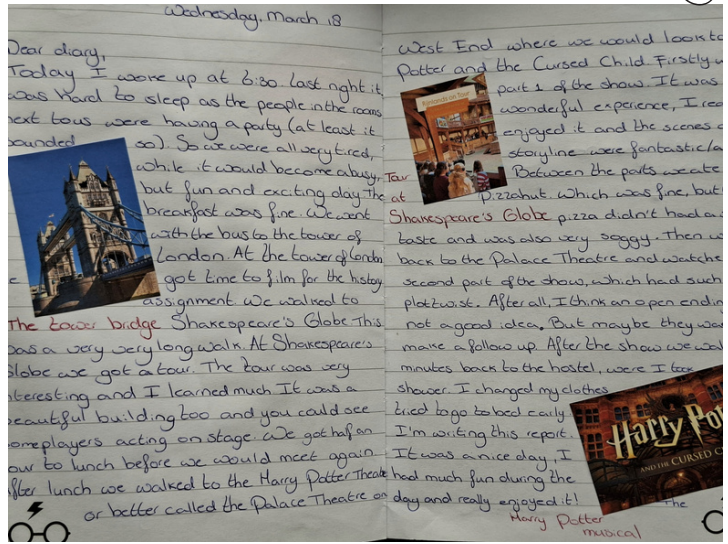 Wednesday, March 18
Dear diary,
Today I woke up at 6:30. Last night it
was hard to sleep as the people in the rooms
next to us were having a party (at least it
sounded so). So we were all very tired,
while it would become a busy,
but fun and exciting day. The
breakfast was fine. We went
with the bus to the tower of
London. At the tower of London
got time to film for the history
assignment. We walked to
The tower bridge
Shakespeare's Globe. This
was a very very long walk. At Shakespeare's
Globe we got a tour. The tour was very
interesting and I learned much. It was a
beautiful building too and you could see
someplayers acting on stage. We got half an
our to lunch before we would meet again
After lunch we walked to the Harry Potter Theatre
or better called the Palace Theatre on
West End where we would look to
Potter and the Cursed Child. Firstly
part 1 of the show. It was
wonderful experience, I
enjoyed it and the scenes
storyline were fantastic
Between the parts we ate
pizzahut. Which was fine, but
Tour
at
Shakespeare's Globe
pizza didn't had
taste and was also very soggy. Then
back to the Palace Theatre and watche
second part of the show, which had such
plottwist. After all, I think an open endin
not a good idea. But maybe they
make a follow up. After the show we wal
minutes back to the hostel, were I took
shower. I changed my clothes
tried to go to bed early.
I'm writing this report.
It was a nice day, I
had much fun during the
day and really enjoyed it!
The
Harry Potter
musical
Harry Po
AND THE CURSED C